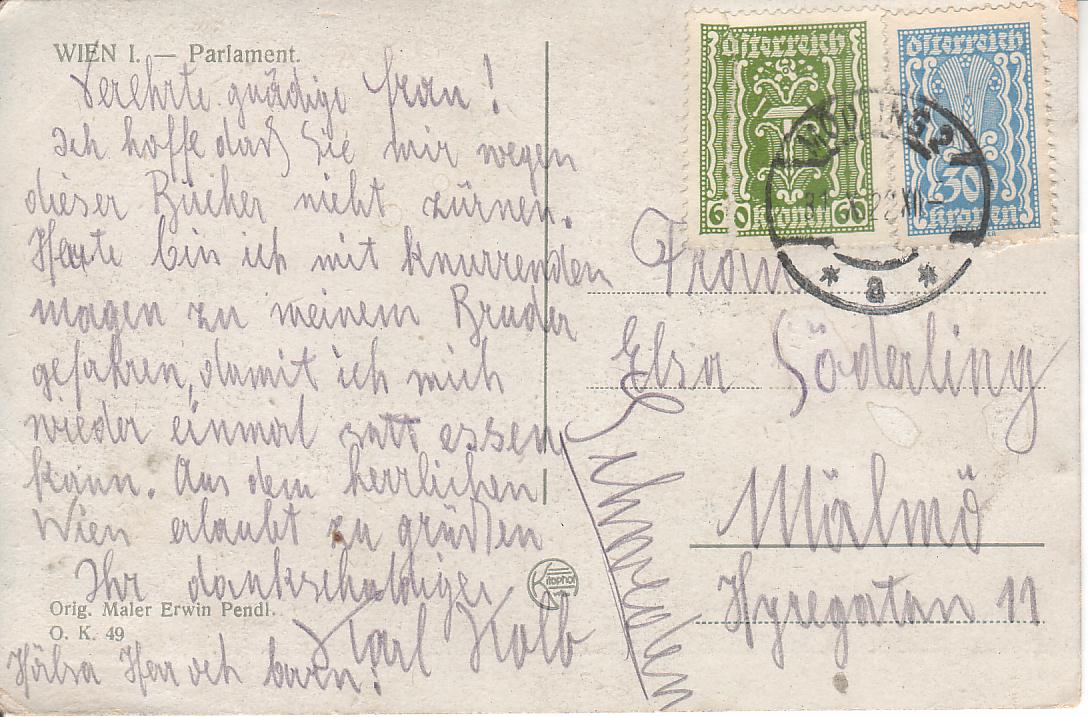 WIEN I. — Parlament.
Verehrte gnädige Frau!
Ich hoffe daß Sie mir wegen
dieser Bücher nicht zürnen.
Heute bin ich mit knurrenden
magen zu meinem Bruder
gefahren, damit ich mich
wieder einmal satt essen
kann. Aus dem herrlichen
Wien erlaubt zu grüßen
Ihr dankschuldiger
Karl Kolb
Hälsa Herr och barn!
Orig. Maler Erwin Pendl.
O. K. 49
Kilophot
Österreich
60 Kronen 60
Österreich
300
Kronen
MÖDLING 2
22 XII
* a *
Frau
Elsa Söderling
Malmö
Hyregatan 11
Schweden